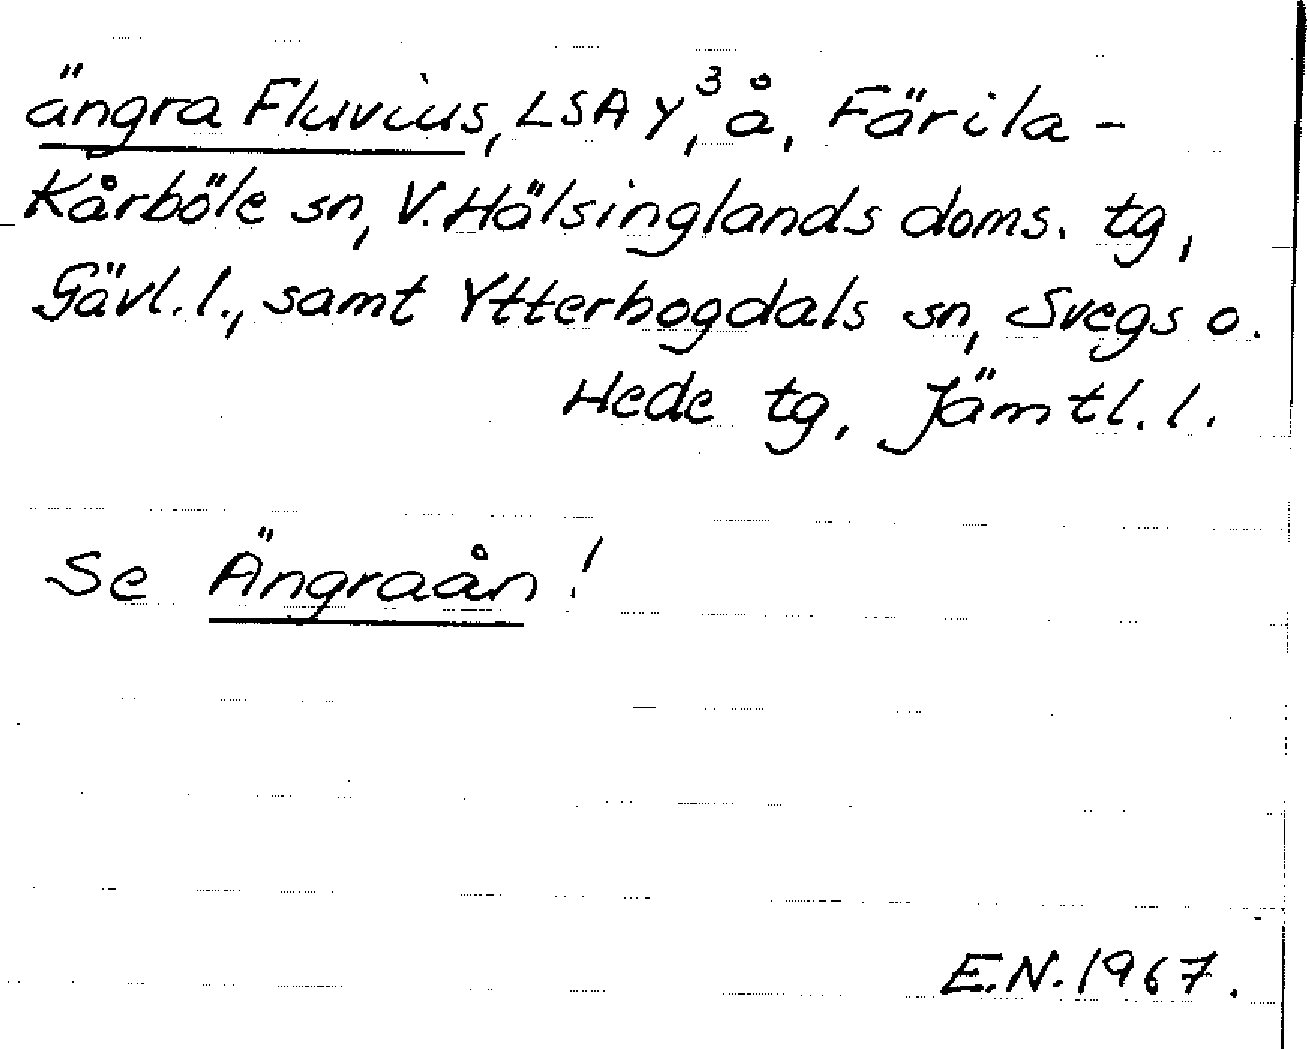 ängra Fluvius, LSA Y³, å, Färila-
Kårböle sn, V. Hälsinglands doms. tg,
Gävl. l., samt Ytterhogdals sn, Svegs o.
Hede tg, Jämtl. l.
Se Ängraån!
E.N. 1967.